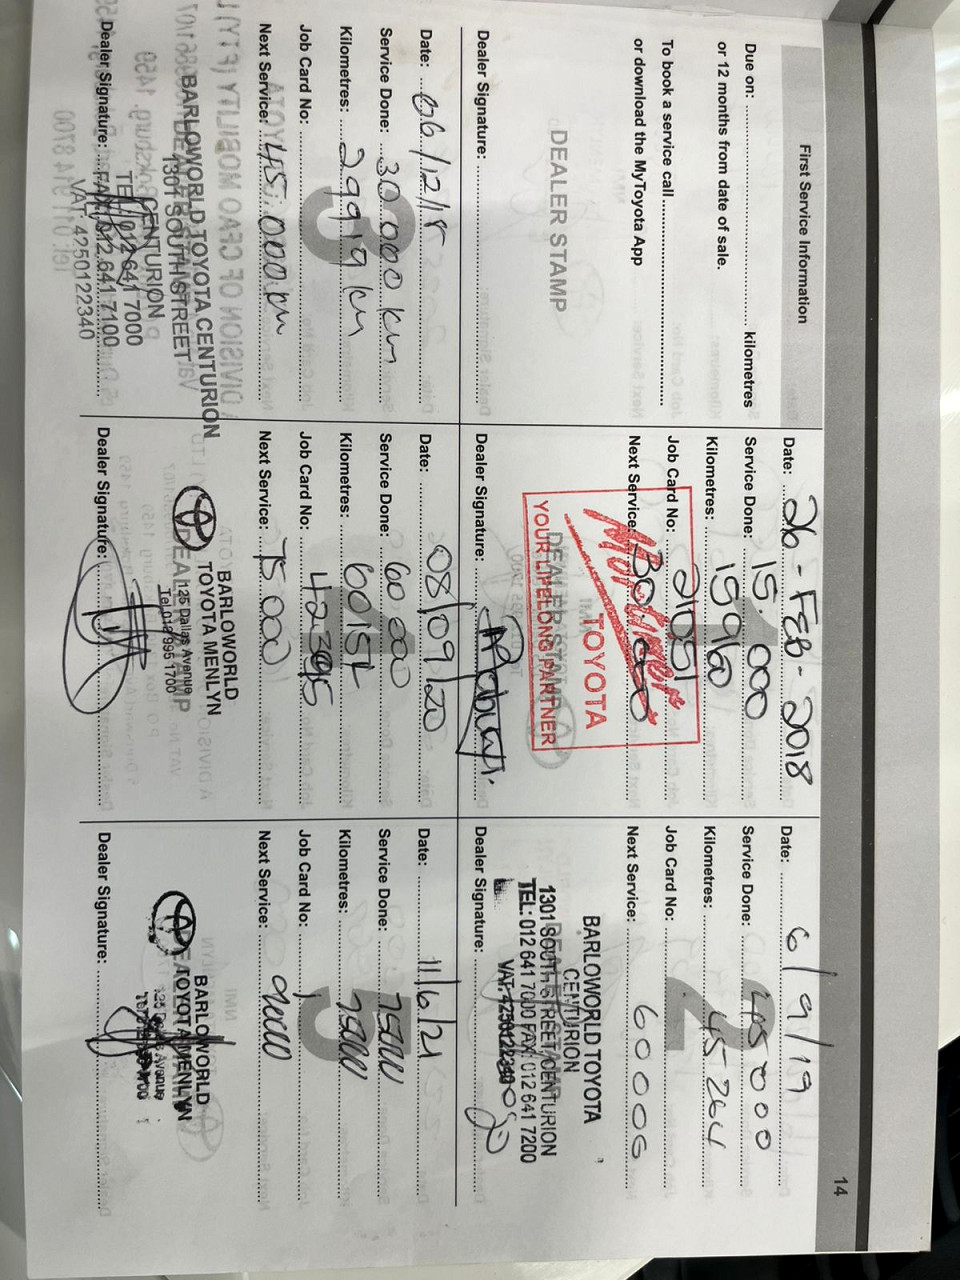 14
First Service Information
Due on: ........ kilometres
or 12 months from date of sale.
To book a service call
or download the MyToyota App
DEALER STAMP
Dealer Signature:
Date: 26 - FEB - 2018
Service Done: 15.000
Kilometres: 15960
Job Card No: 21051
Next Service: 30 000
TOYOTA
YOUR LIFELONG PARTNER
DEALER STAMP
Dealer Signature:
Date: 6/9/19
Service Done: 45 000
Kilometres: 45264
Job Card No:
Next Service: 60 000
BARLOWORLD TOYOTA
CENTURION
1301 SOUTH STREET CENTURION
TEL: 012 641 7000 FAX: 012 641 7200
VAT: 4250122340
Dealer Signature:
Date: 06/12/18
Service Done: 30 000 km
Kilometres: 29919 km
Job Card No:
Next Service: 45 000 km
BARLOWORLD TOYOTA CENTURION
1301 SOUTH STREET
CENTURION
TEL: 012 641 7000
FAX: 012 641 7100
VAT: 4250122340
Dealer Signature:
Date: 08/09/20
Service Done: 60 000
Kilometres: 60157
Job Card No: 42395
Next Service: 75 000
BARLOWORLD
TOYOTA MENLYN
125 Dallas Avenue
Tel 012 995 1700
Dealer Signature:
Date: 11/6/21
Service Done: 75000
Kilometres: 75000
Job Card No:
Next Service: 90000
BARLOWORLD
TOYOTA MENLYN
Dealer Signature: